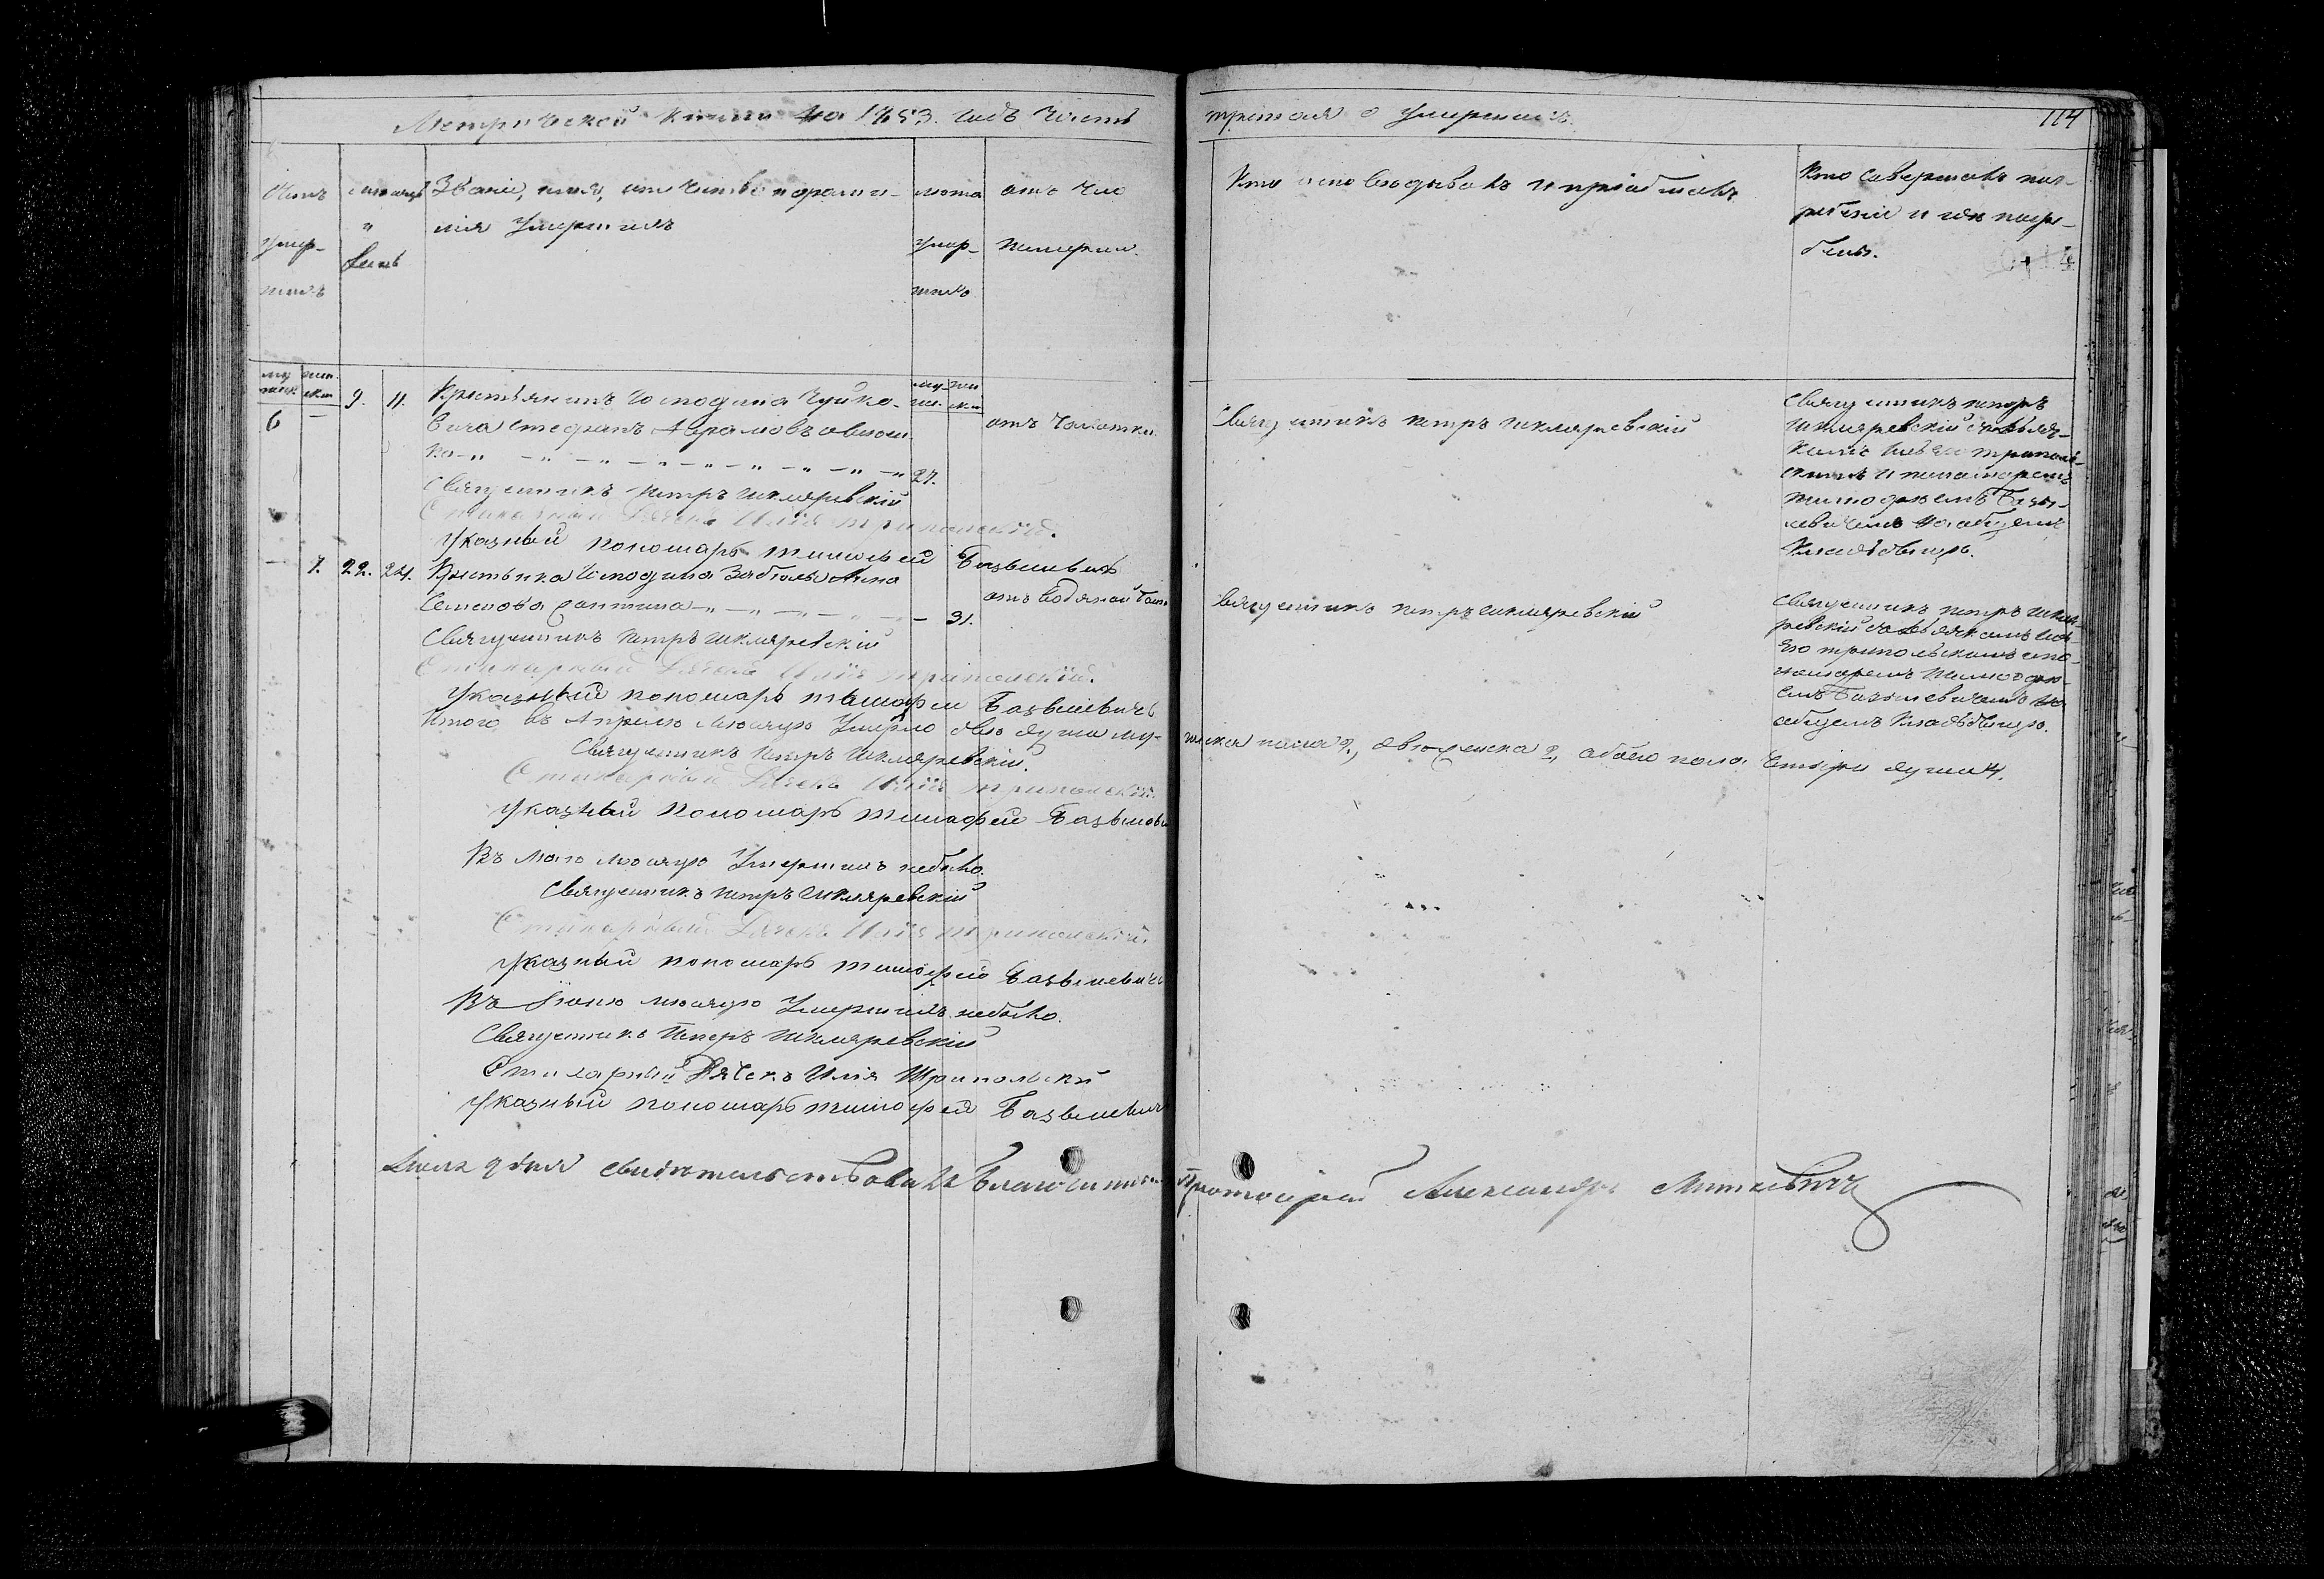 Метрической книги на 1853. годъ часть
третая о Умершихъ.
114
Счетъ
умер-
шихъ
месяцъ
и
день
Званіе, имя, отечество и фами-
лія Умершихъ
лета
умер-
шихъ
отъ чего
померли.
Кто исповедывалъ и пріобщалъ
Кто Совершалъ пог-
ребеніе и где погре-
бены.
муж. жен-ска
6 — 9. 11. Крестьянинъ господина Чуйке-
вича Стефанъ Аврамовъ
27.
отъ Чахотки
Священникъ петръ шкляревскій
Священникъ петръ
шкляревскій съ дьяч-
комъ
и пономаремъ
тимофеемъ Базы-
левичемъ на общемъ
Кладбищѣ.
Священникъ петръ шкляревскій
Стихарный Дячекъ Илія трипольскій.
Указный пономарь тимофей Базылевичъ
— 7. 22. 24. Крестьянка господина Анна
Семенова
31.
отъ водяной
Священникъ петръ шкляревскій
Священникъ петръ шкля-
ревскій съ дьячкомъ Илі-
ею трипольскимъ и по-
номаремъ тимофе-
емъ Базылевичемъ на
общемъ Кладбищѣ.
Священникъ петръ шкляревскій
Стихарный Дячекъ Илія трипольскій.
Указный пономарь тимофей Базылевичъ
Итого въ Апрелѣ месяцѣ Умерло две души му-
жеска пола 2, двѣ женска 2, обоего пола четыри души 4.
Священникъ петръ шкляревскій.
Стихарный Дячекъ Илія трипольскій.
Указный пономарь тимофей Базылеви
Въ маѣ месяцѣ Умершихъ небыло.
Священникъ петръ шкляревскій
Стихарный Дячекъ Илія трипольскій.
Указный пономарь тимофей Базылевичъ
Въ Іюнѣ месяцѣ Умершихъ небыло.
Священникъ петръ шкляревскій
Стихарный Дячекъ Илія Трипольскій
Указный пономарь тимофей Базылевичъ
свидѣтельствовалъ Благочинный Протоіерей Александръ Миткевичъ